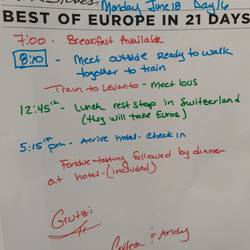 Monday June 18 Day 16
BEST OF EUROPE IN 21 DAYS
7:00 - Breakfast Available
8:10 - Meet outside Ready to walk
together to train
Train to Levanto - Meet bus
12:45ish - Lunch rest stop in Switzerland
(they will take Euros)
5:15ish pm - Arrive hotel - Check in
Fondue tasting followed by dinner
at hotel - (included)
Grutzi
&
Andy